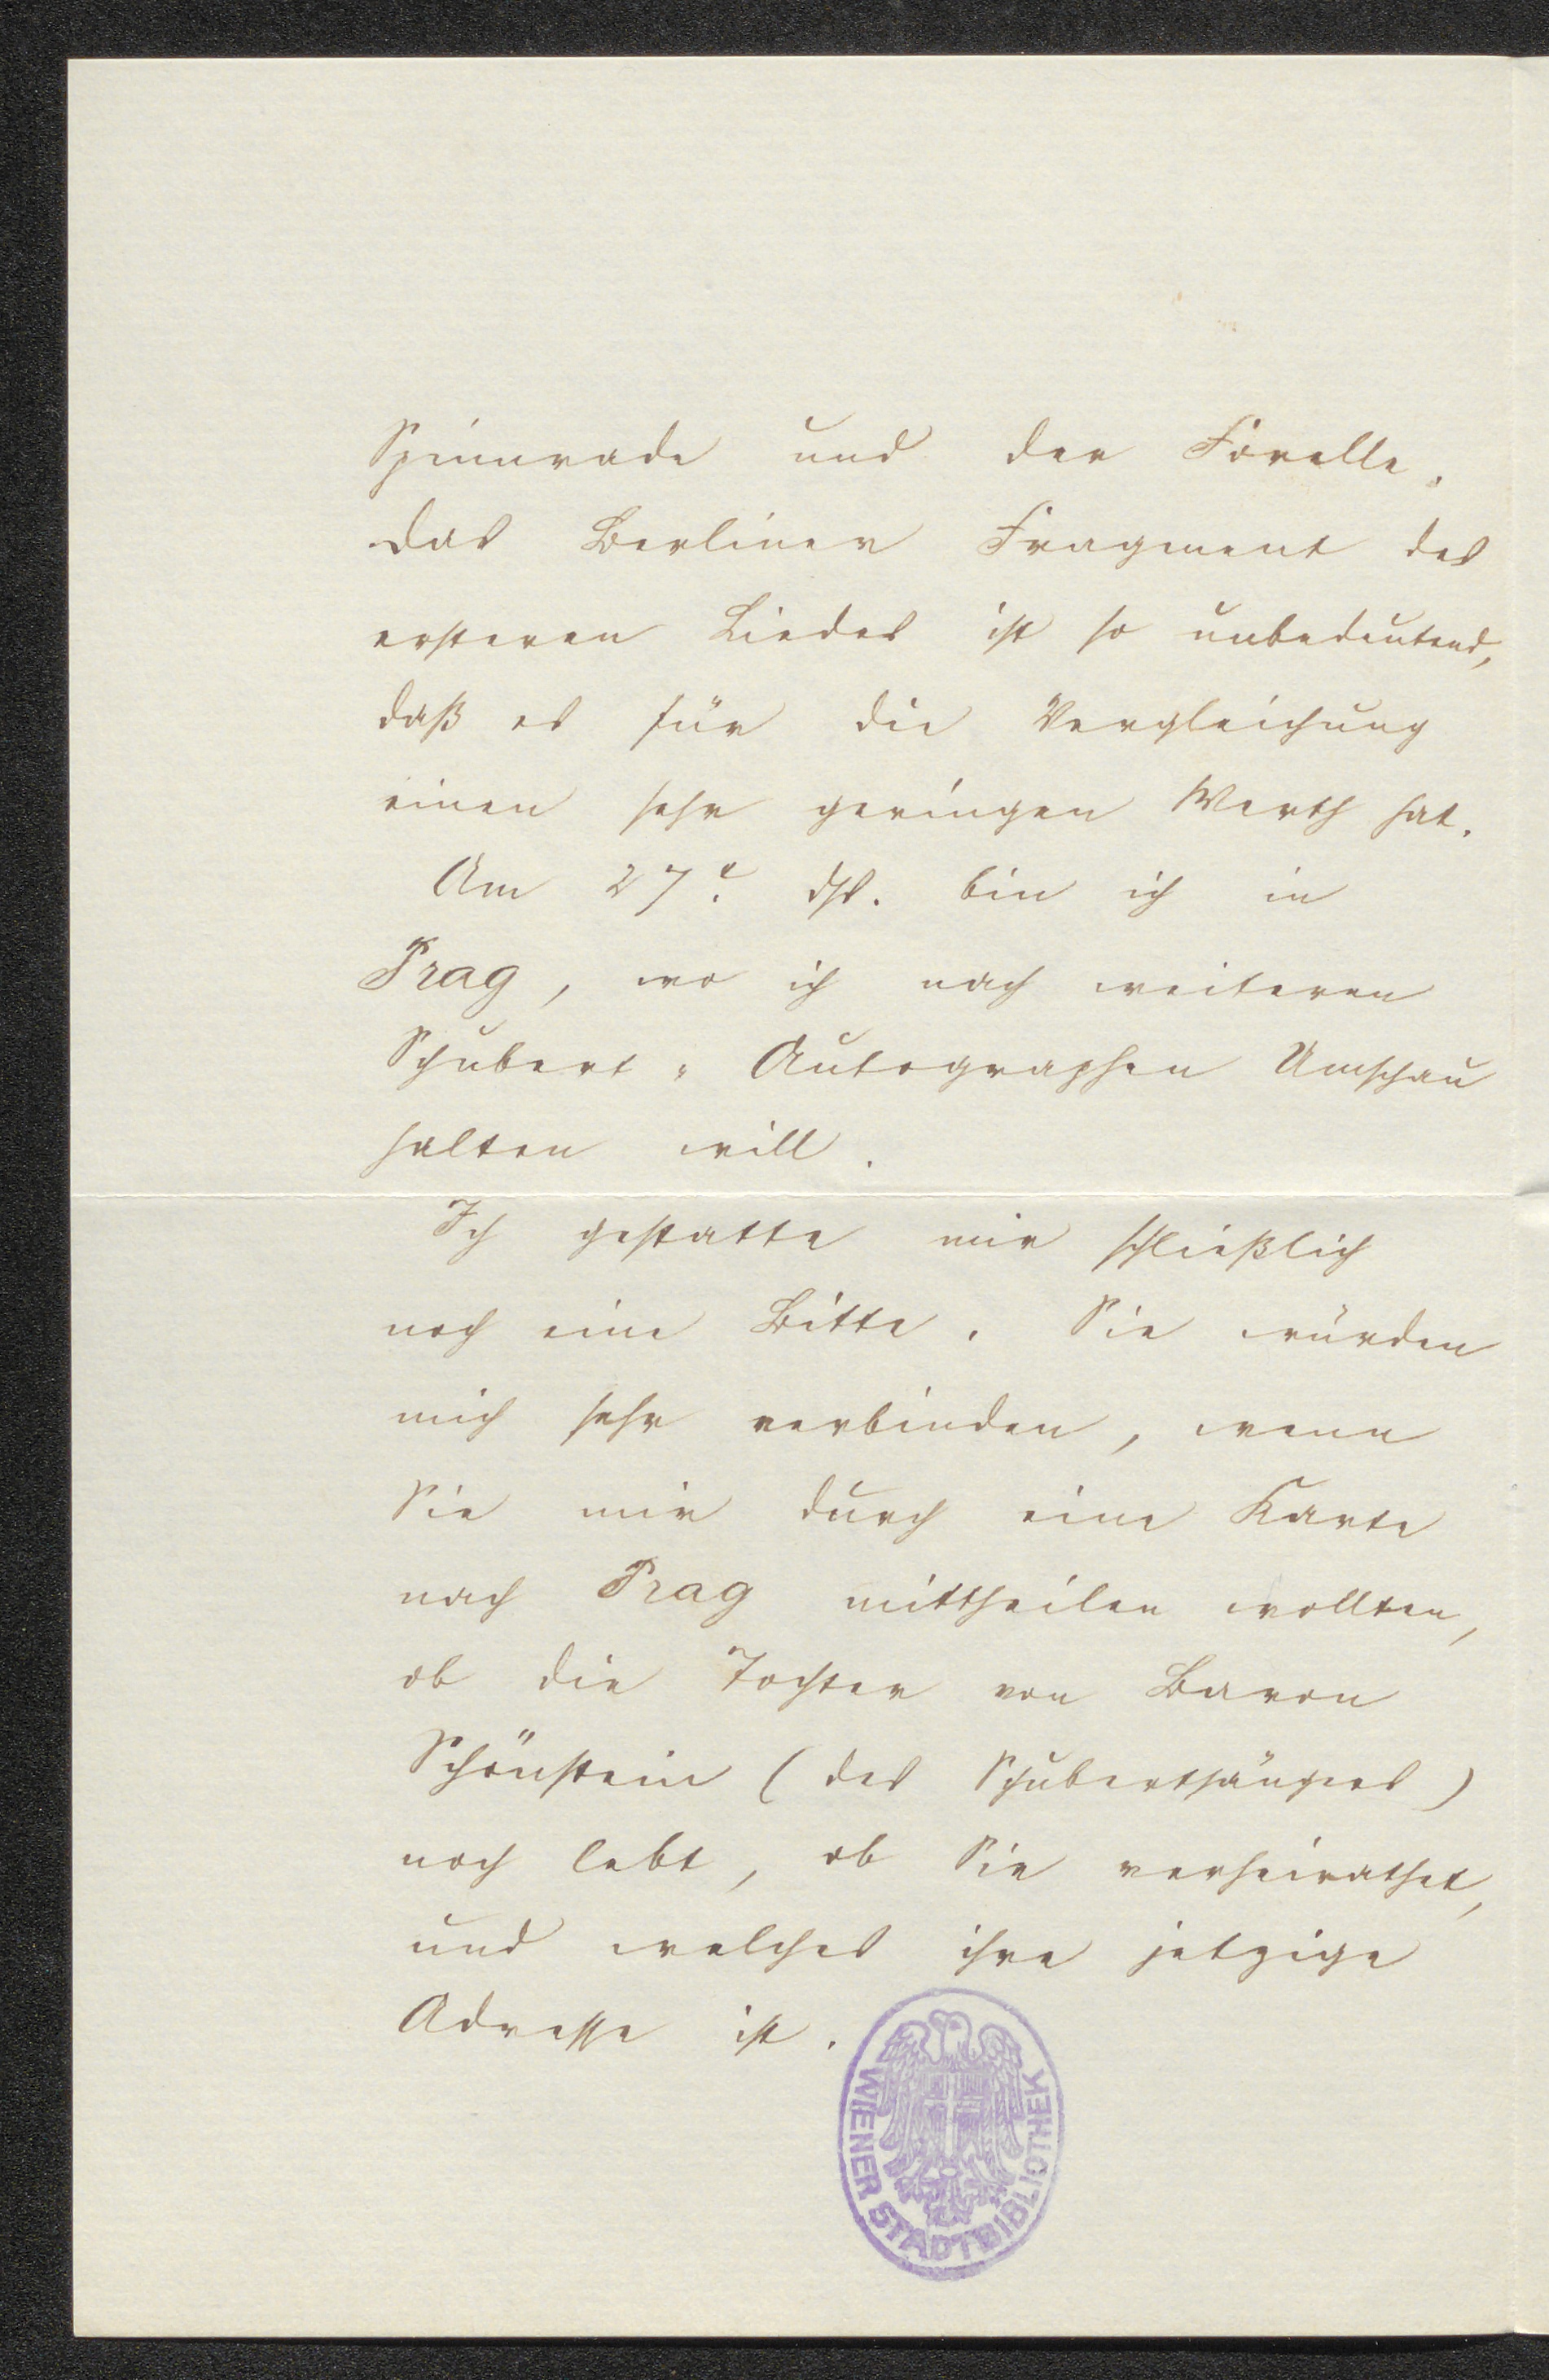 Spinnrade und der Forelle.
Das Berliner Fragment des
ersteren Liedes ist so unbedeutend,
daß es für die Vergleichung
einen sehr geringen Werth hat.
Am 27t. ds. bin ich in
Prag, wo ich nach weiteren
Schubert-Autographen Umschau
halten will.
Ich gestatte mir schließlich
noch eine Bitte. Sie würden
mich sehr verbinden, wenn
Sie mir durch eine Karte
nach Prag mittheilen wollten,
ob die Tochter von Baron
Schönstein (des Schubertsängers)
noch lebt, ob Sie verheirathet,
und welches ihre jetzige
Adresse ist.
WIENER STADTBIBLIOTHEK